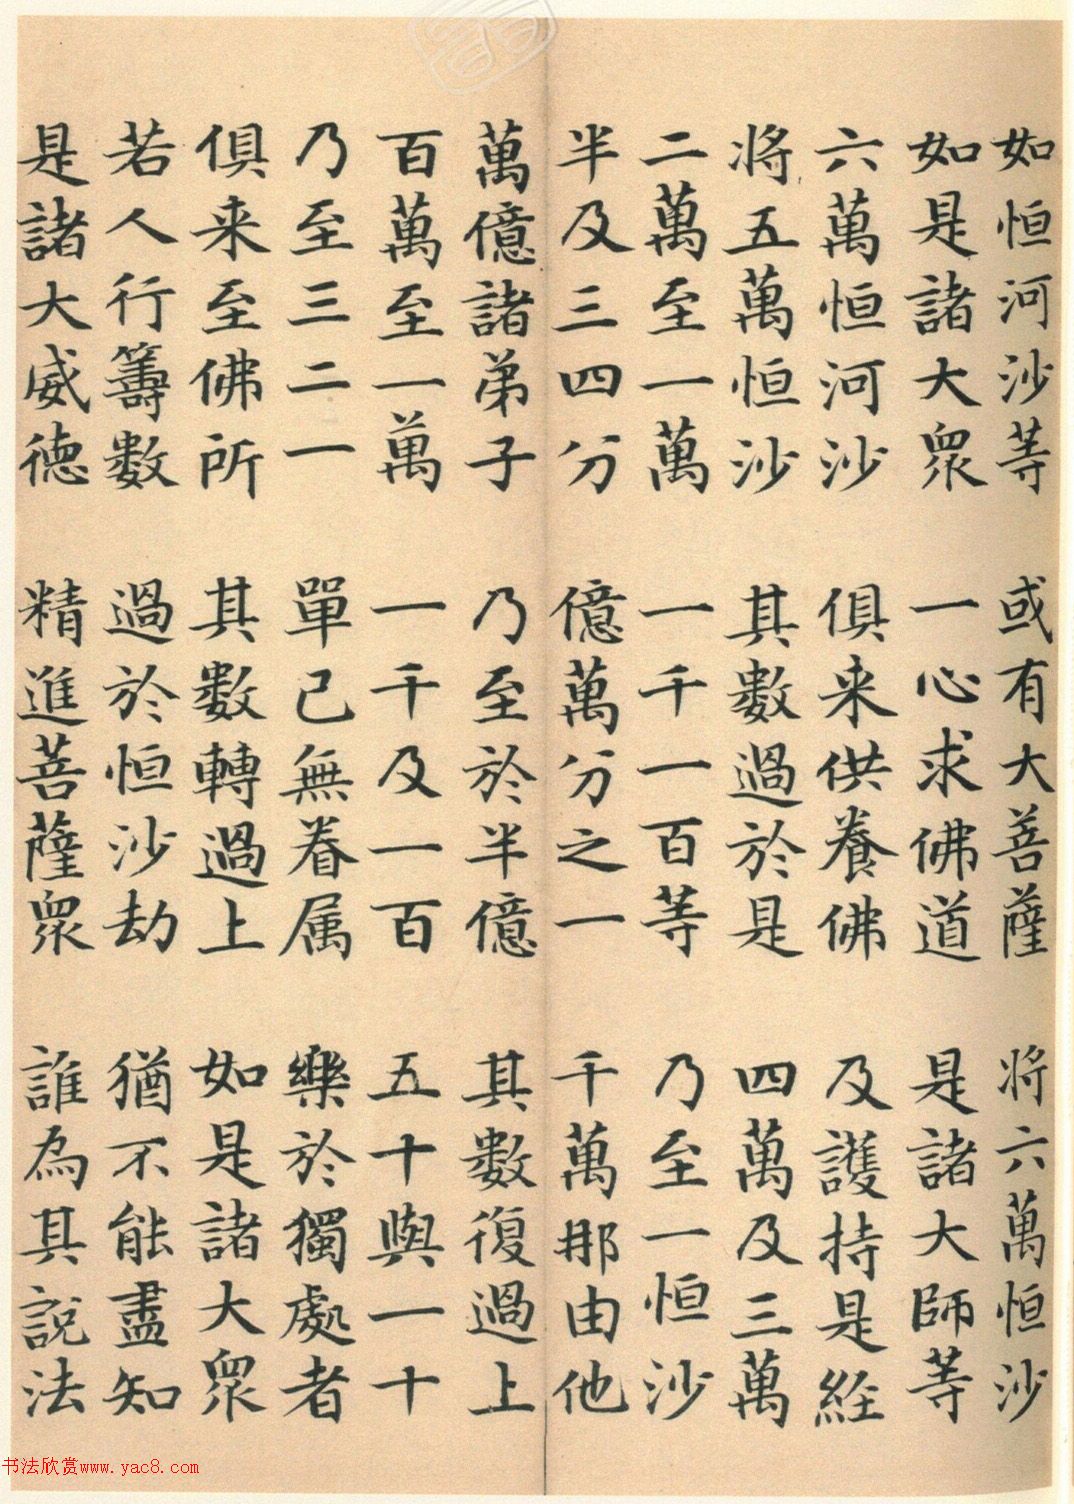 如恒河沙等 或有大菩薩 將六萬恒沙
如是諸大衆 一心求佛道 是諸大師等
六萬恒河沙 俱来供養佛 及護持是経
將五萬恒沙 其數過於是 四萬及三萬
二萬至一萬 一千一百等 乃至一恒沙
半及三四分 億萬分之一 千萬那由他
萬億諸弟子 乃至於半億 其數復過上
百萬至一萬 一千及一百 五十與一十
乃至三二一 單己無眷属 樂於獨處者
俱来至佛所 其數轉過上 如是諸大衆
若人行籌數 過於恒沙劫 猶不能盡知
是諸大威德 精進菩薩衆 誰為其說法
书法欣赏www.yac8.com